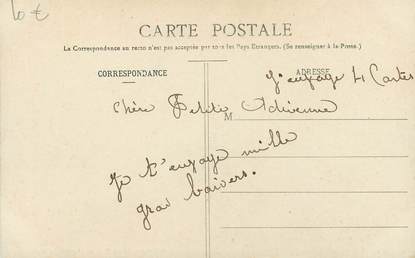 10 €
CARTE POSTALE
La Correspondance au recto n'est pas acceptée par tous les Pays Étrangers. (Se renseigner à la Poste.)
CORRESPONDANCE
ADRESSE
J'envoye 4 Cartes
Chère Petite Adrienne
M
Je t'envoye mille
gros baisers.